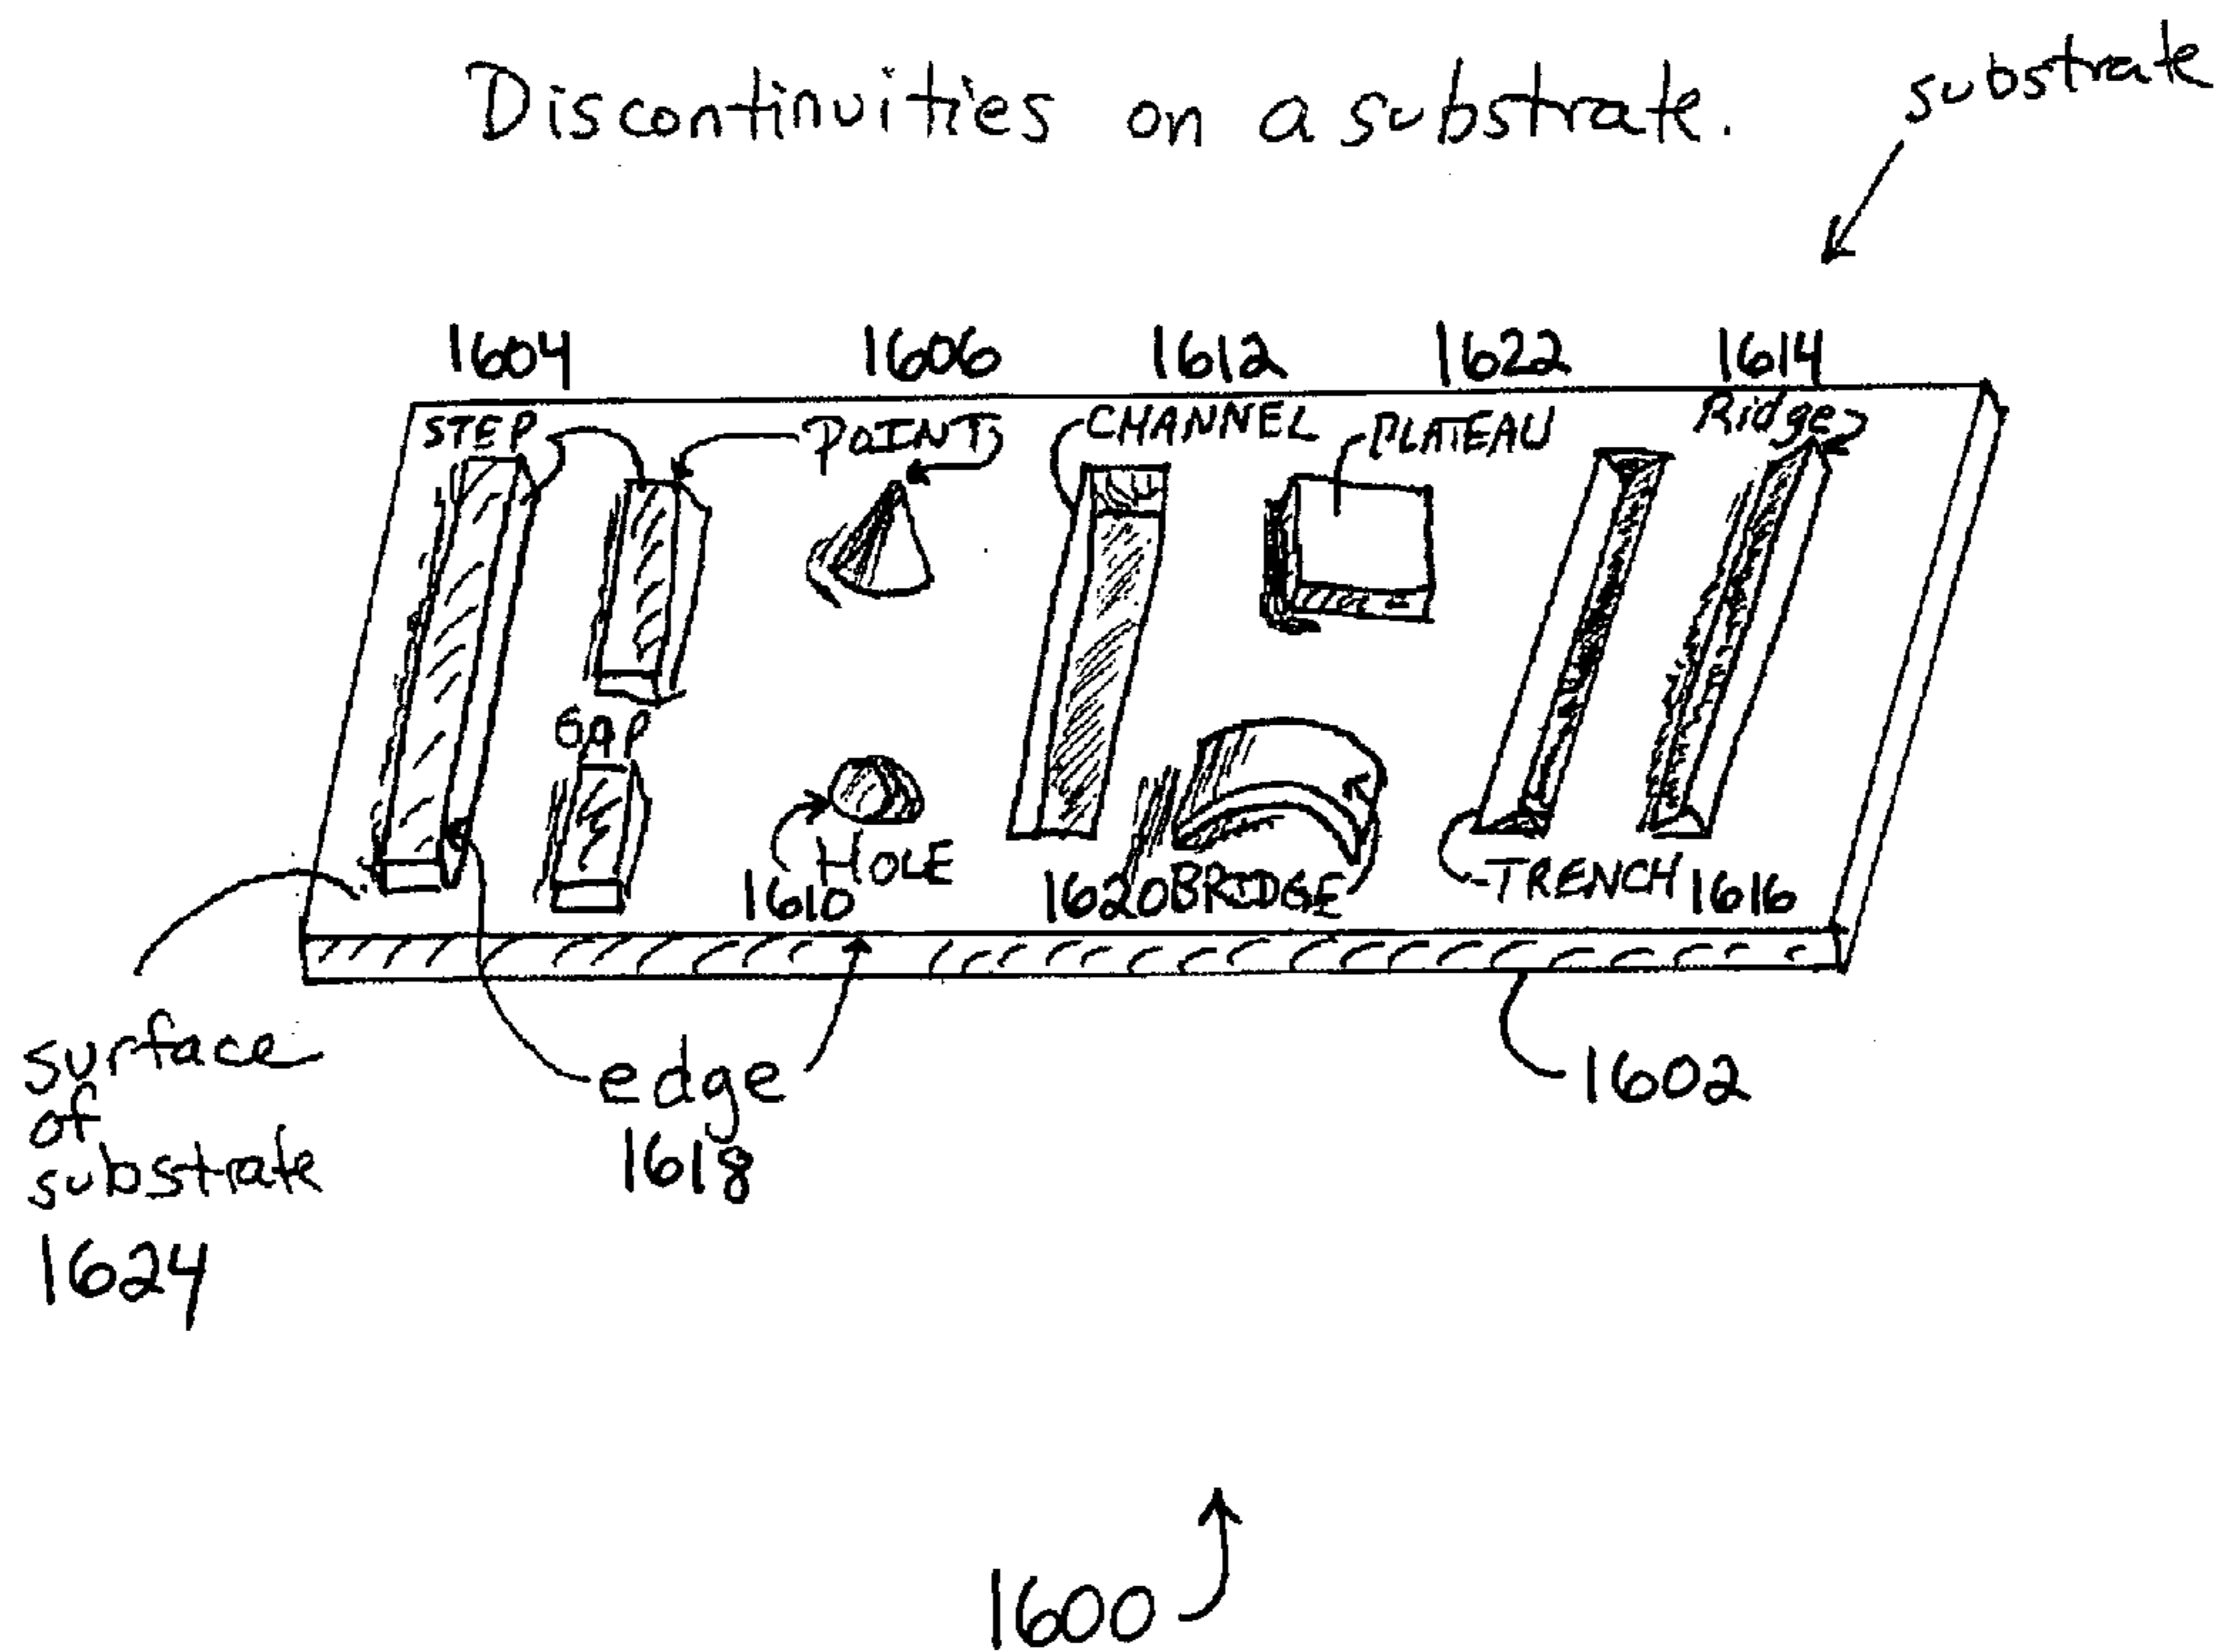 Discontinuities on a substrate.
substrate
1604 1606 1612 1622 1614
STEP POINT CHANNEL PLATEAU Ridge
Gap
HOLE
1610 1620 BRIDGE TRENCH 1616
surface
of
substrate
1624
edge
1618
1602
1600